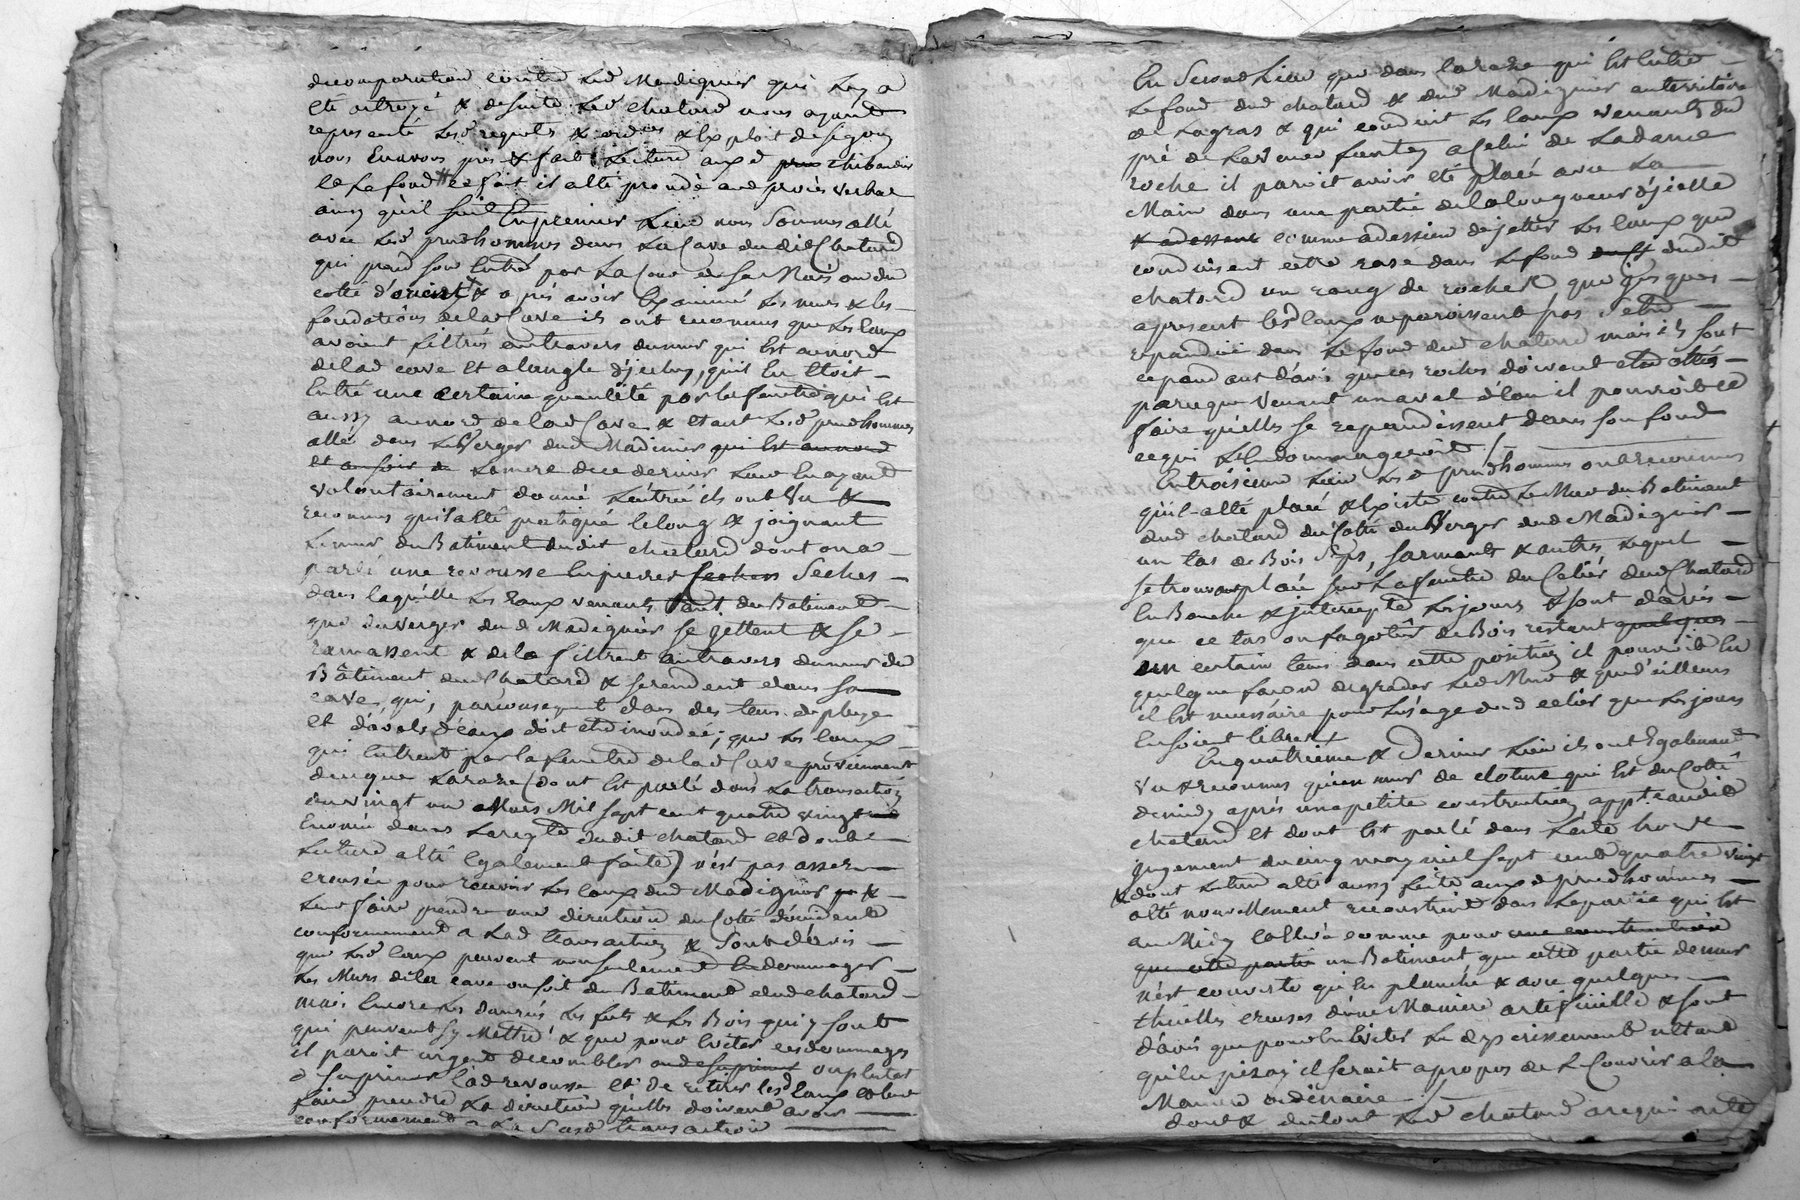 decomparution contre led Madignier qui luy a
été octroyé & de suite led chatard nous ayant
representé lesd requete & ordces & Exploit de signon
nous En avons pris & fait Lecture auxd thibaudier
et Lafond ce fait il a été procédé aud procès verbal
ainsy qu'il suit En premier Lieu nous Sommes allé
avec lesd prudhommes dans La Cave dudit Chatard
qui prend son Entrée par La Cour de sa Maison du
cotté d'orient & après avoir Examiné les murs & les
fondations de lad Cave ils ont reconnus que Les Eaux
avoient filtrés autravers dumur qui Est au nord
delad cave Et a langle d'jceluy, qu'il En Etoit
Entré une certaine quantité par la fenetre qui Est
aussy au nord de lad Cave & Etant Lesd prudhommes
allé dans Le Verger dud Madinier qui Est au nord
et au soir de La mere de ce dernier Leur En ayant
volontairement donné L'entrée ils ont Vu &
reconnus quil a été pratiqué le long & joignant
Le mur du Batiment dudit chatard dont on a
parlé une revousse En pierres seches Seches
dans laquelle Les Eaux venants tant du Batiment
que du verger dud Madignier se jettent & se
ramassent & dela filtrent autravers dumur du
Bâtiment dud Chatard & se rendent dans sa
cave, qui, par consequent dans des tems de pluye
Et d'avals d'eaux doit etre inondée; que Les Eaux
qui Entrent par la fenetre de lad Cave proviennent
de ce que La raze (dont Est parlé dans La transaction
du vingt un Mars Mil sept cent quatre vingt
Enoncée dans La reqte dudit chatard et dont
Lecture a été Egalement faite) n'est pas assez
creusée pour recevoir Les Eaux dud Madignier &
Leur faire prendre une direction du Cotté d'occident
conformement a Lad transaction & Sont d'avis
que Lesd Eaux peuvent non seulement Endommager
Les Murs dela cave ou soit du Batiment dud chatard
mais Encore Les danrées Les futs & Les Bois qui y sont
qui peuvent s'y Mettre & que pour Eviter ces dommages
il paroit urgent de combler ou de suprimer ou plutot
suprimer Lad revousse Et de retirer lesd Eaux et leur
faire prendre La direction qu'elles doivent avoir
conformement a La Susd transaction
En Second Lieu que dans La raze qui Est Entre
Le fond dud chatard & dud Madignier au territoire
de Lagras & qui conduit les Eaux venants du
pré de a Celui de La dame
roche il paroit avoir été placé avec La
Main dans une partie de la longueur d'jcelle
& a dessein comme a dessein de jetter Les Eaux que
conduisent cette raze dans Le fond dudit
chatard un rang de rochers que jusques
apresent lesd Eaux ne paroissent pas S'etre
repandüe dans Le fond dud chatard mais ils sont
cependant d'avis que ces roches doivent etre ottés
parceque Venant un aval d'Eau il pourroit se
faire qu'elles se repandissent dans son fond
ce qui L'Endommageroit /
En troisieme Lieu Lesd prudhommes ont reconnus
qu'il a été placé & Existe contre Le Mur du Batiment
dud chatard du Cotté du Verger dud Madignier
un tas de Bois Seps, sarments & autres Lequel
se trouvant placé sur La fenetre du Celier dud Chatard
En Bouche & jntercepte Les jours & sont d'avis
que ce tas ou fagotier de Bois restant quelques
un certain tems dans cette position il pourroit En
quelque facon degrader Led Mur & que d'illeurs
il Est necessaire pour L'usage dud celier que Les jours
En soient libres /
En quatrieme & Dernier Lieu ils ont Egalement
Vu & reconnus qu'un mur de cloture qui Est du Cotté
de midy après une petite construction appt. audit
chatard Et dont Est parlé dans
jugement du cinq may mil sept cent quatre vingt
& dont Lecture a été aussy faite auxd prudhommes
a été nouvellement reconstruit dans La partie qui Est
au Midy Et Elevé comme pour une construction
que cette partie un Batiment que cette partie de mur
n'est couverte qu'En planche & avec quelques
thuilles creuses d'une Maniere artificielle & sont
d'avis que pour En Eviter Le deperissement n'Etant
qu'En pizay il seroit apropos de Le Couvrir a la
Maniere ordinaire /
dont & dutout Led chatard a requi acte